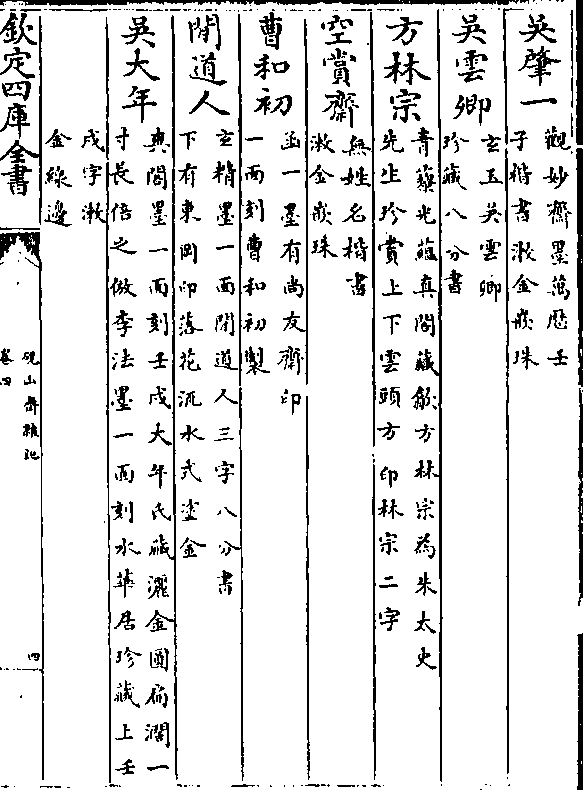 吳肇一
觀妙齋墨萬厯壬
子楷書漱金嵌珠
吳雲卿
玄玉吳雲卿
珍藏八分書
方林宗
青藜光藴真閣藏歙方林宗為朱太史
先生珍賞上下雲頭方印林宗二字
空賞齋
無姓名楷書
漱金嵌珠
曹和初
函一墨有尚友齋印
一面刻曹和初製
閒道人
玄精墨一面閒道人三字八分書
下有東岡印落花流水式塗金
吳大年
真閣墨一面刻壬戌大年氏藏灑金圓扁濶一
寸長倍之倣李法墨一面刻水華居珍藏上壬
戌字漱
金綠邊
欽定四庫全書
硯山齋雜記
卷四
四